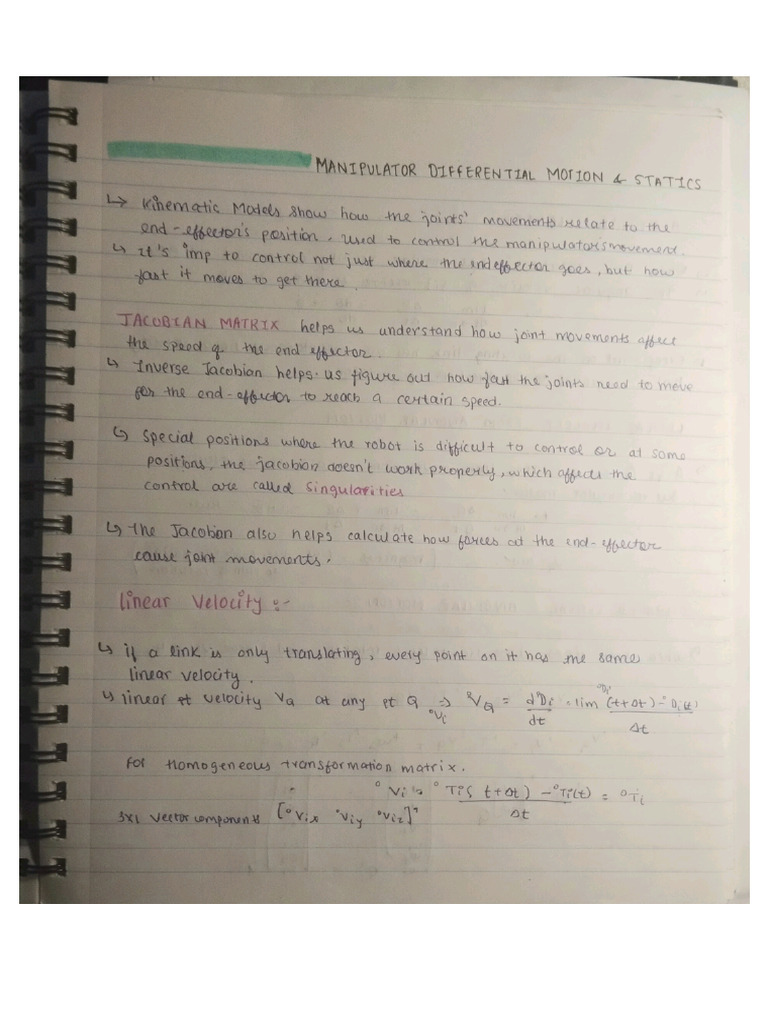 MANIPULATOR DIFFERENTIAL MOTION & STATICS
↳ Kinematic Models show how the joints' movements relate to the
end-effector's position. Used to control the manipulator's movement.
↳ It's imp to control not just where the endeffector goes, but how
fast it moves to get there.
JACOBIAN MATRIX helps us understand how joint movements affect
the speed of the end effector.
↳ Inverse Jacobian helps us figure out how fast the joints need to move
for the end-effector to reach a certain speed.
↳ Special positions where the robot is difficult to control or at some
positions, the jacobian doesn't work properly, which affects the
control are called Singularities
↳ The Jacobian also helps calculate how forces at the end-effector
cause joint movements.
linear Velocity :-
↳ if a link is only translating, every point on it has the same
linear velocity.
↳ linear pt velocity VQ at any pt Q ⇒ ⁰VQ = d⁰Di/dt = lim ⁰Di(t+Δt) - ⁰Di(t)/Δt
⁰Vi
For Homogeneous transformation matrix.
⁰Vi = ⁰Ti(t+Δt) - ⁰Ti(t)/Δt = ⁰Ti
3x1 vector components [⁰Vix ⁰Viy ⁰Viz]ᵀ